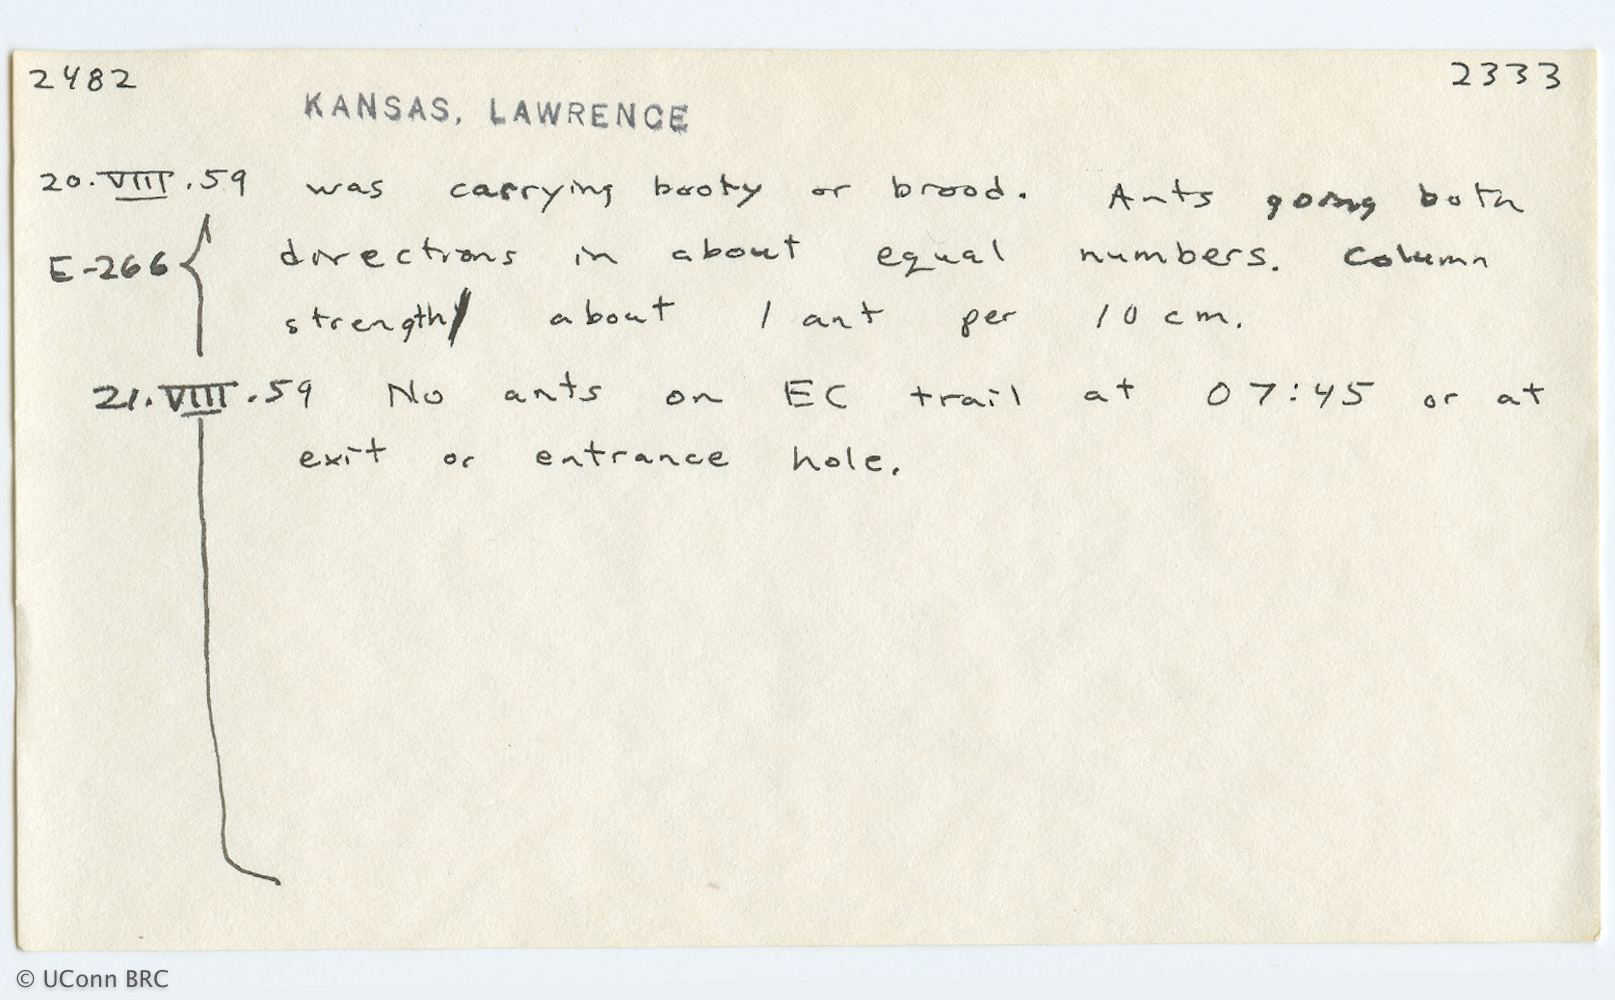 2482 2333
KANSAS, LAWRENCE
20.VIII.59 was carrying booty or brood. Ants going both
E-266 directions in about equal numbers. Column
strength about 1 ant per 10 cm.
21.VIII.59 No ants on EC trail at 07:45 or at
exit or entrance hole.
© UConn BRC